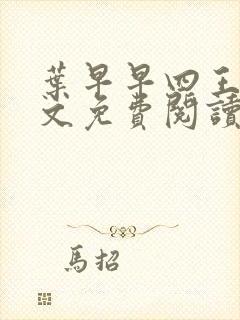 葉早早四王
文免費閱讀
馬招